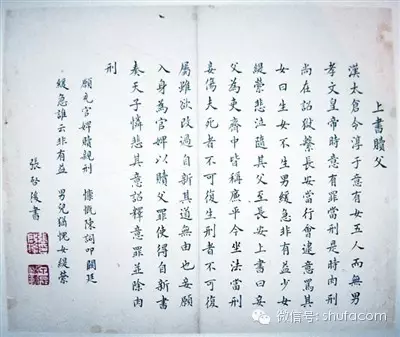 上書贖父
漢太倉令淳于意有女五人而無男
孝文皇帝時意有罪當刑是時肉刑
尚在詔獄繫長安當行會逮意罵其
女曰生女不生男緩急非有益少女
緹縈悲泣隨其父至長安上書曰妾
父為吏齊中皆稱廉平今坐法當刑
妾傷夫死者不可復生刑者不可復
屬雖欲改過自新其道無由也妾願
入身為官婢以贖父罪使得自新書
奏天子憐悲其意詔釋意罪並除肉
刑
願充官婢贖親刑 慷慨陳詞叩闕廷
緩急誰云非有益 男兒猶愧女緹縈
張 俊書
微信号: shufacom